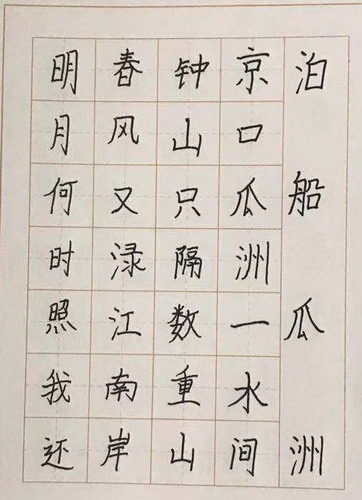 泊船瓜洲
京口瓜洲一水间
钟山只隔数重山
春风又渌江南岸
明月何时照我还